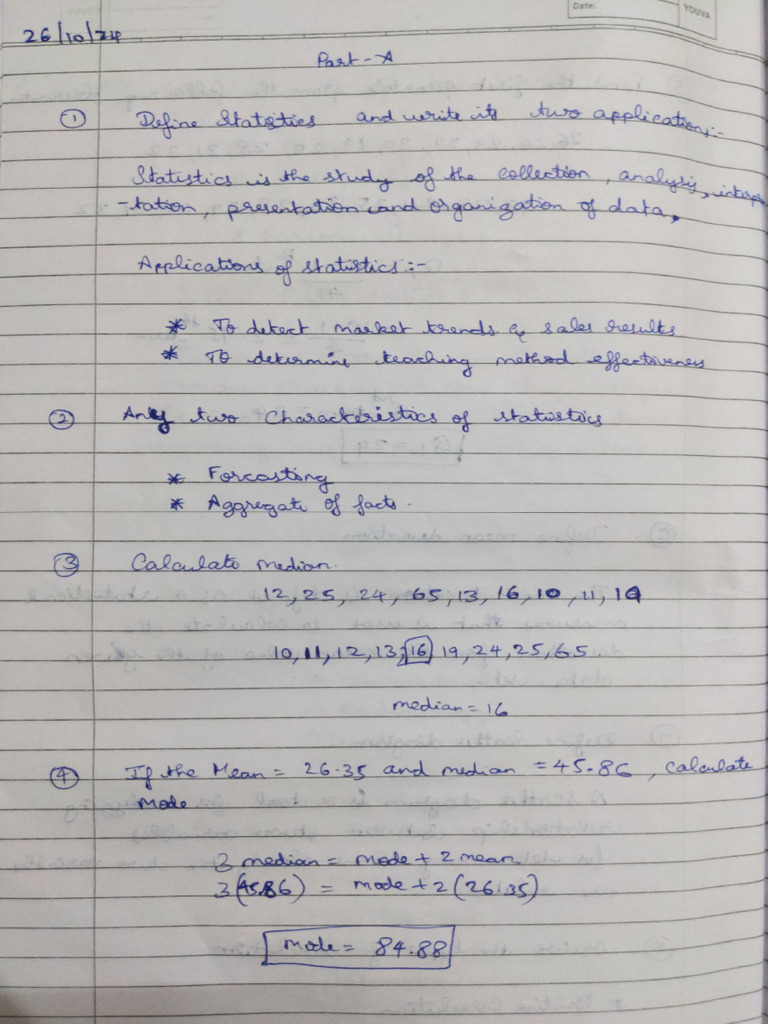 Date:
YOUVA
26/10/24
Part-A
① Define Statistics and write its two applications:-
Statistics is the study of the collection, analysis, interpre
-tation, presentation and organization of data.
Applications of statistics:-
* To detect market trends & sales results
* To determine teaching method effectiveness
② Any two Characteristics of statistics
* Forcasting
* Aggregate of facts.
③ Calculate median.
12, 25, 24, 65, 13, 16, 10, 11, 19
10, 11, 12, 13, 16, 19, 24, 25, 65.
median = 16
④ If the Mean = 26.35 and median = 45.86, calculate
Mode
3 median = mode + 2 mean
3(45.86) = mode + 2(26.35)
mode = 84.88